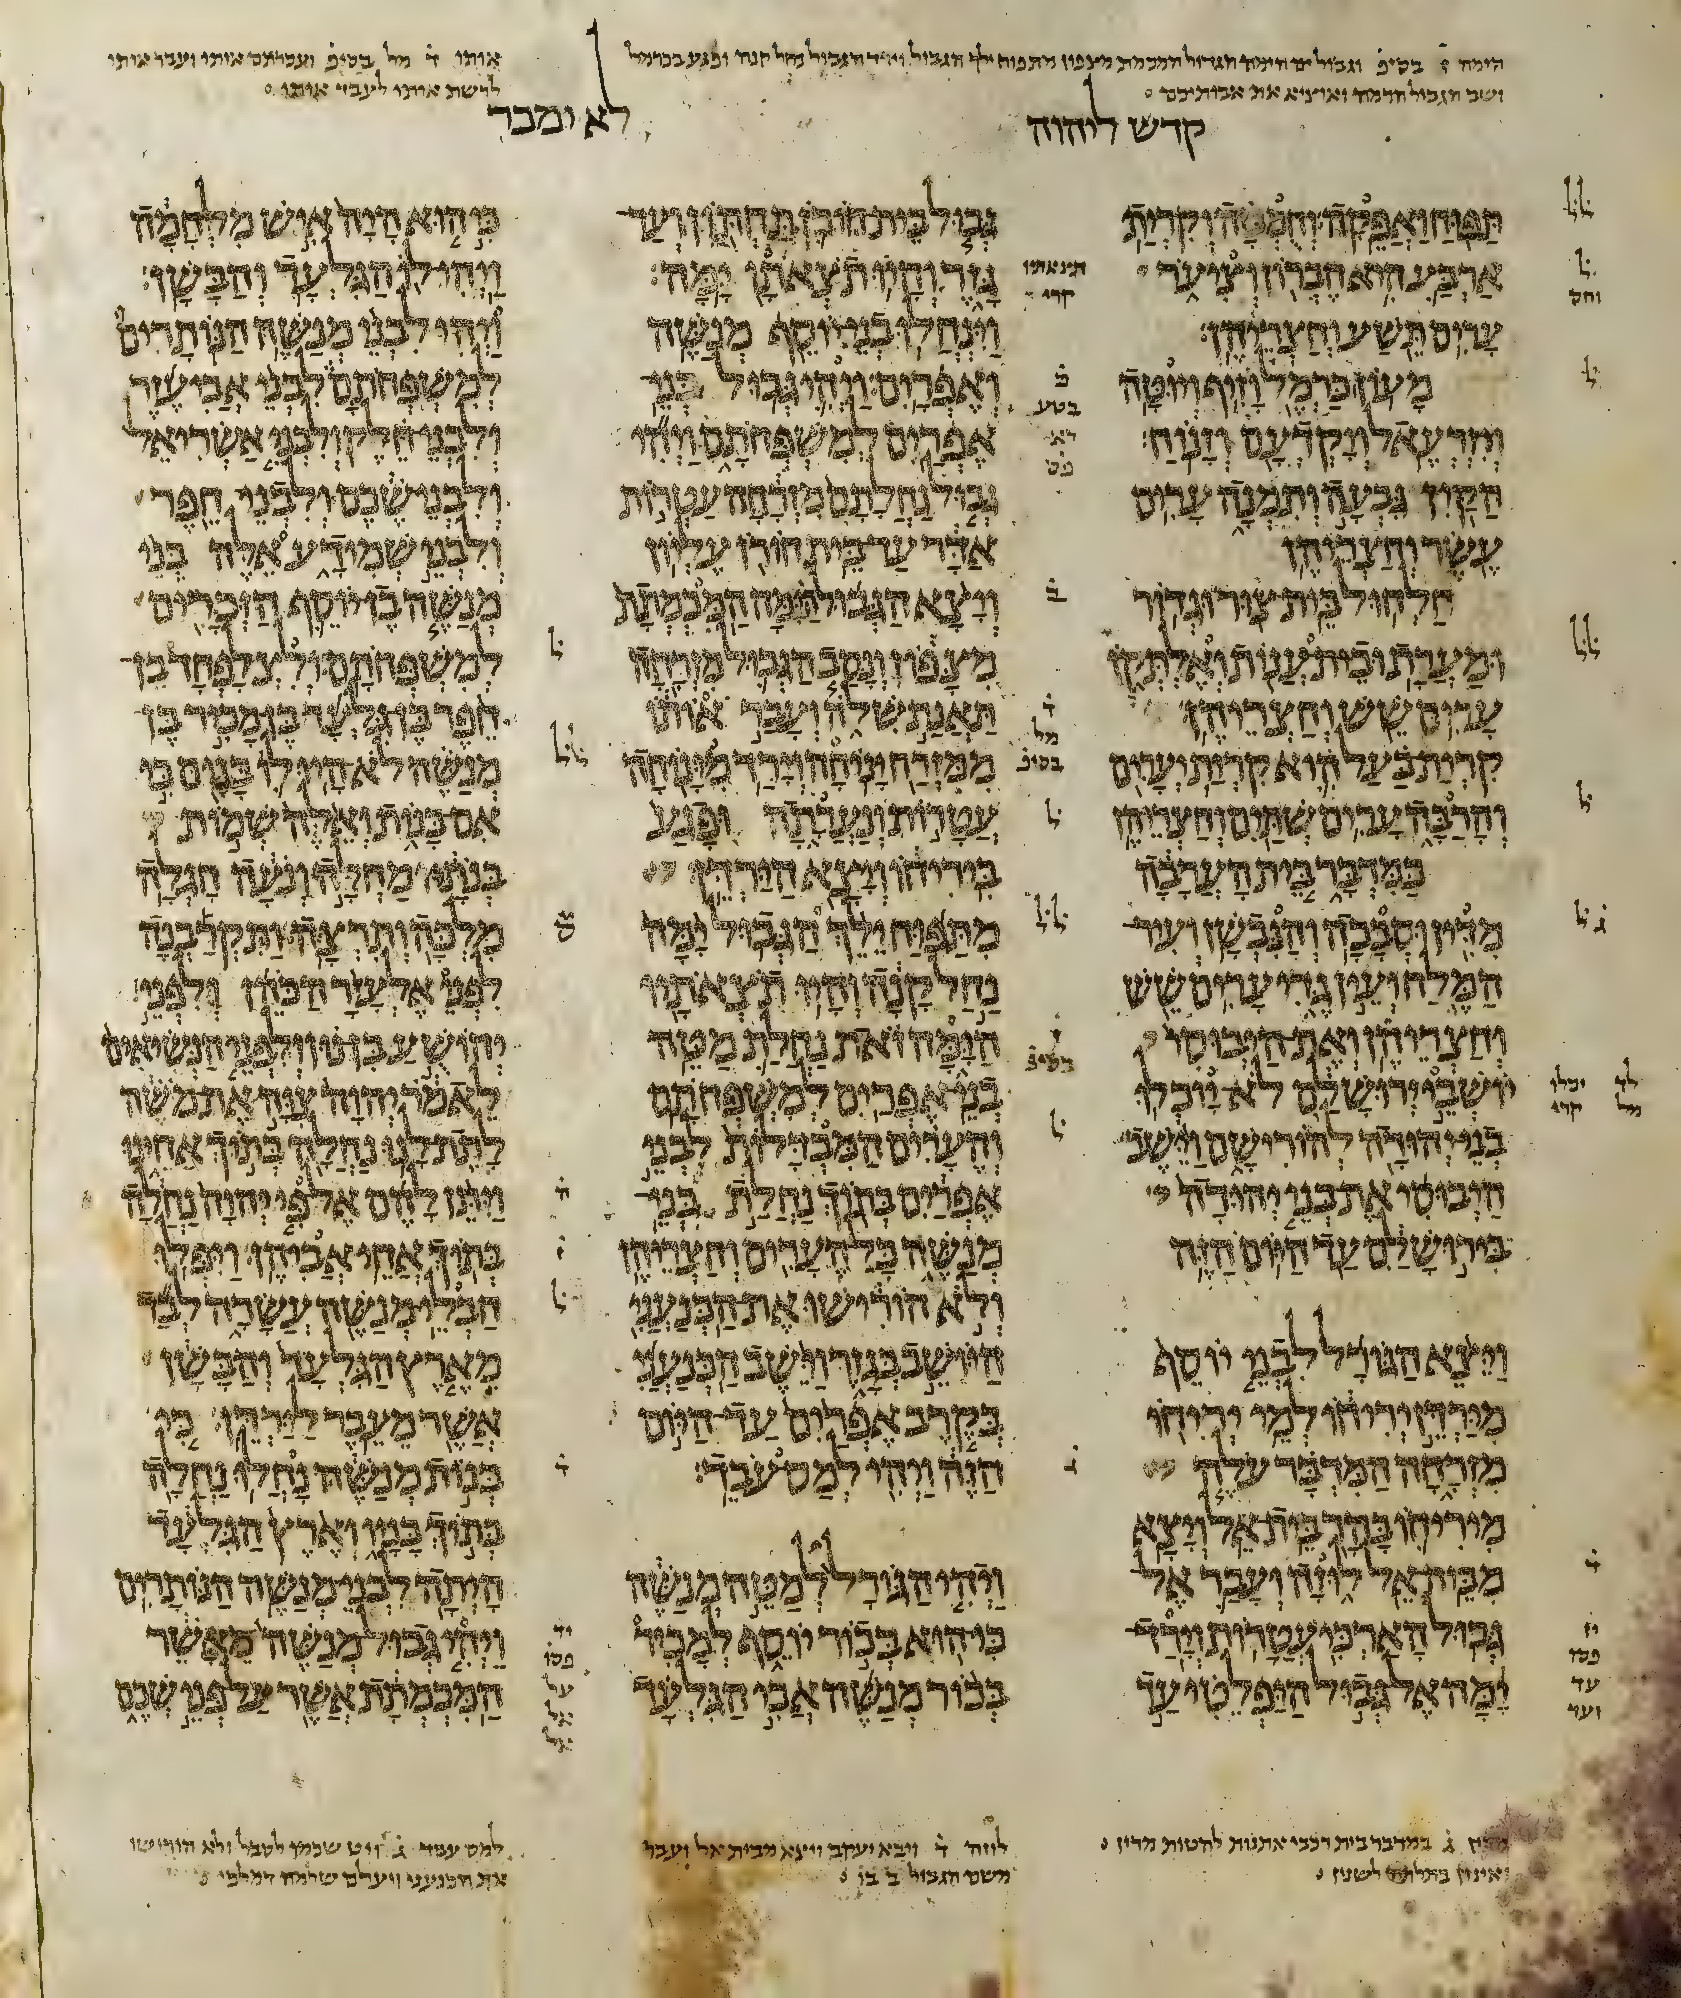 הימה ג֗ בסיפ֗ וגבול ים הימה הגדול המכמתת מצפון מתפוח ילך הגבול וירד הגבול נחל קנה ופגע בכרמל
ושב הגבול הרמה ואוציא את אבותיכם
אותו ד֗ מל בסיפ֗ ועברתם אותו ועבר אותו
לרשת אותו לעבר אותו
קדש ליהוה
לא ימכר
תפוח ואפקה וחמטה וקרית
ארבע היא חברון וציער
ערים תשע וחצריהן
מעון כרמל וזיף ויוטה
ויזרעאל ויקדעם וזנוח
הקין גבעה ותמנה ערים
עשר וחצריהן
חלחול בית צור וגדור
ומערת ובית ענות ואלתקן
ערים שש וחצריהן
קרית בעל היא קרית יערים
והרבה ערים שתים וחצריהן
במדבר בית הערבה
מדין וסככה והנבשן ועיר
המלח ועין גדי ערים שש
וחצריהן ואת היבוסי
יושבי ירושלם לא יוכלו
בני יהודה להורישם וישב
היבוסי את בני יהודה
בירושלם עד היום הזה
ויצא הגורל לבני יוסף
מירדן יריחו למי יריחו
מזרחה המדבר עלה
מיריחו בהר בית אל ויצא
מבית אל לוזה ועבר אל
גבול הארכי עטרות וירד
ימה אל גבול היפלטי עד
גבול בית חורן תחתון ועד
גזר והיו תצאתו ימה
וינחלו בני יוסף מנשה
ואפרים ויהי גבול בני
אפרים למשפחתם ויהי
גבול נחלתם מזרחה עטרות
אדר עד בית חורן עליון
ויצא הגבול הימה המכמתת
מצפון ונסב הגבול מזרחה
תאנת שלה ועבר אותו
ממזרח ינוחה וירד מינוחה
עטרות ונערתה ופגע
ביריחו ויצא הירדן
מתפוח ילך הגבול ימה
נחל קנה והיו תצאתיו
הימה זאת נחלת מטה
בני אפרים למשפחתם
והערים המבדלות לבני
אפרים בתוך נחלת בני
מנשה כל הערים וחצריהן
ולא הורישו את הכנעני
היושב בגזר וישב הכנעני
בקרב אפרים עד היום
הזה ויהי למס עבד
ויהי הגורל למטה מנשה
כי הוא בכור יוסף למכיר
בכור מנשה אבי הגלעד
כי הוא היה איש מלחמה
ויהי לו הגלעד והבשן
ויהי לבני מנשה הנותרים
למשפחתם לבני אביעזר
ולבני חלק ולבני אשריאל
ולבני שכם ולבני חפר
ולבני שמידע אלה בני
מנשה בן יוסף הזכרים
למשפחתם ולצלפחד בן
חפר בן גלעד בן מכיר בן
מנשה לא היו לו בנים כי
אם בנות ואלה שמות
בנתיו מחלה ונעה חגלה
מלכה ותרצה ותקרבנה
לפני אלעזר הכהן ולפני
יהושע בן נון ולפני הנשיאים
לאמר יהוה צוה את משה
לתת לנו נחלה בתוך אחינו
ויתן להם אל פי יהוה נחלה
בתוך אחי אביהן ויפלו
חבלי מנשה עשרה לבד
מארץ הגלעד והבשן
אשר מעבר לירדן כי
בנות מנשה נחלו נחלה
בתוך בניו וארץ הגלעד
היתה לבני מנשה הנותרים
ויהי גבול מנשה מאשר
המכמתת אשר על פני שכם
מדין ג֗ במדבר בית רכבי אתנות להטות מדין
ואינון בתלתה לשנין
לוזה ד֗ ויבא יעקב ויצא מבית אל ועבר
משם הגבול ב֗ בו
למס עבד ג֗ ויט שכמו לסבל ולא הורישו
את הכנעני